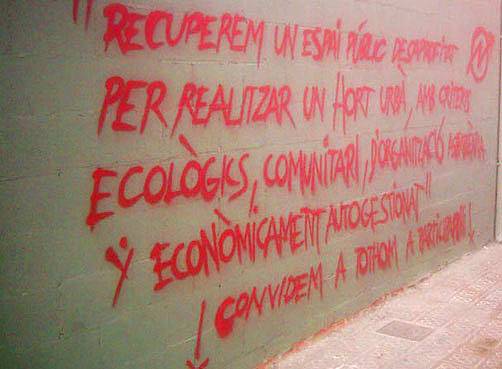 "RECUPEREM UN ESPAI PÚBLIC DESAPROFITAT
PER REALITZAR UN HORT URBÀ, AMB CRITERIS
ECOLÒGICS, COMUNITARI, D'ORGANITZACIÓ
Y ECONÒMICAMENT AUTOGESTIONAT"
CONVIDEM A TOTHOM A PARTICIPAR